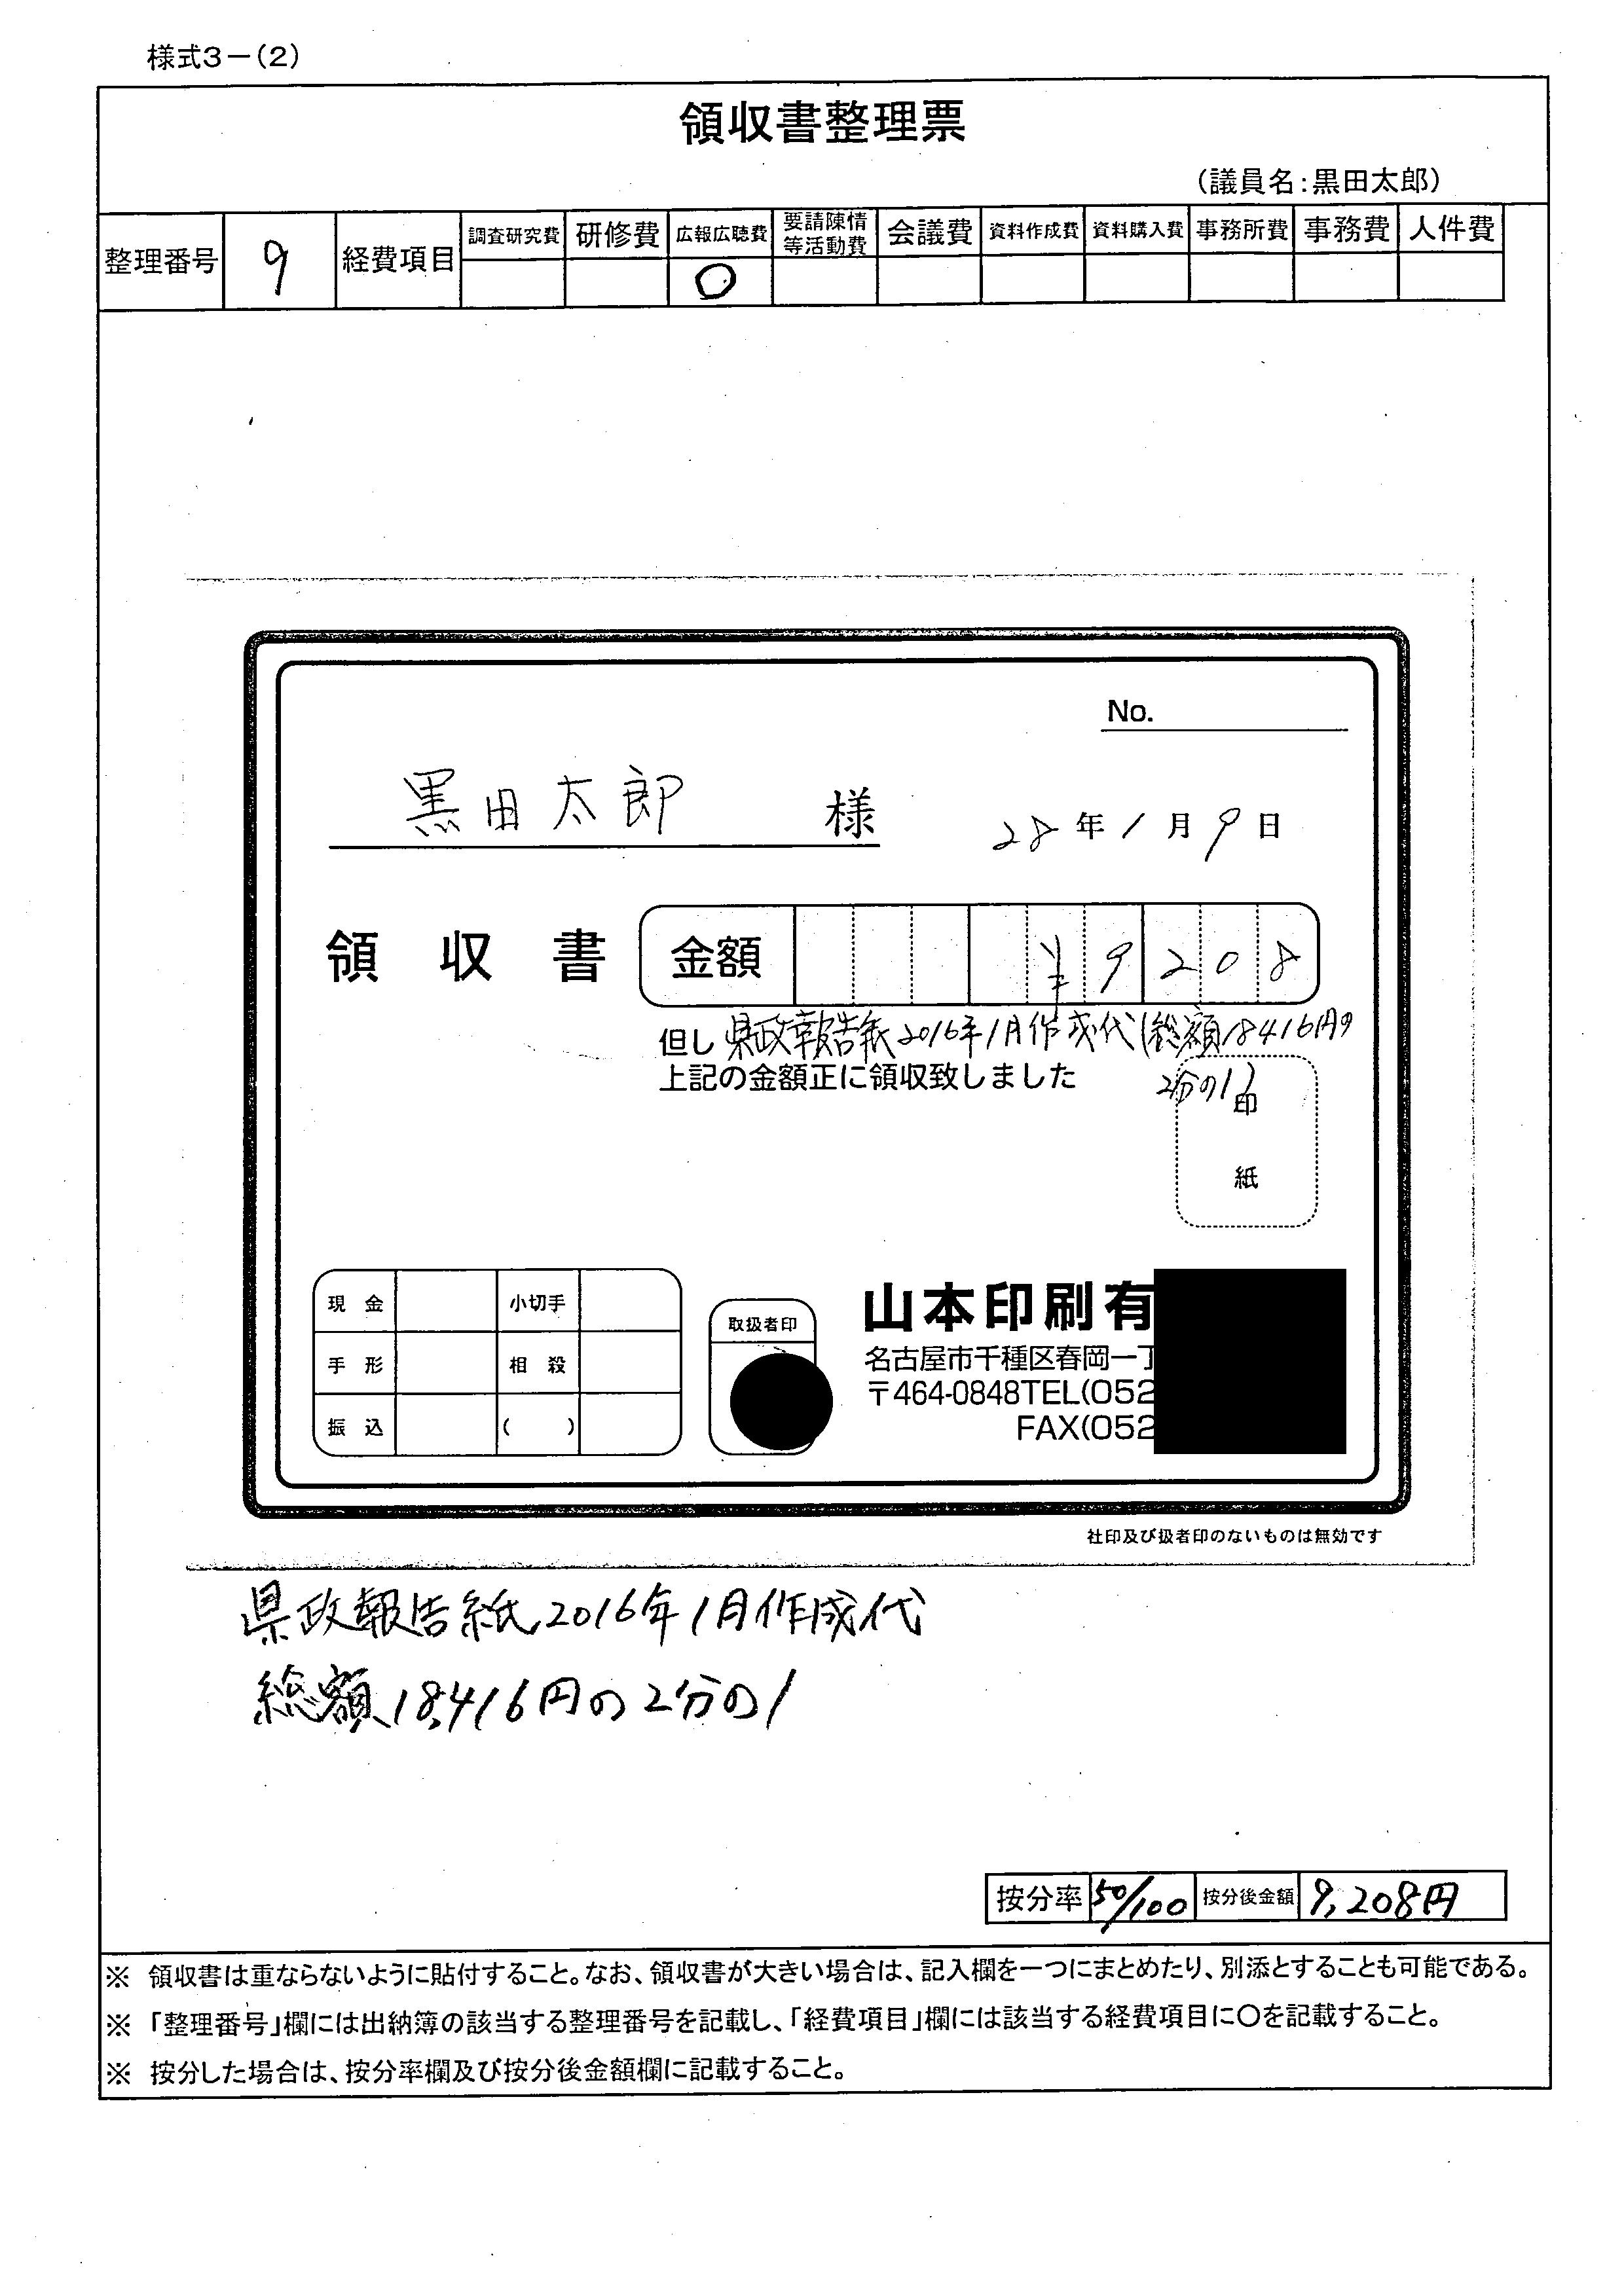 様式3－(2)
領収書整理票
(議員名:黒田太郎)
整理番号 9 経費項目 調査研究費 研修費 広報広聴費 要請陳情等活動費 会議費 資料作成費 資料購入費 事務所費 事務費 人件費
○
No.
黒田太郎 様 28年1月9日
領収書 金額 ¥9208
但し 県政報告紙2016年1月作成代(総額18416円の
2分の1)
上記の金額正に領収致しました
印
紙
現金 小切手
手形 相殺
振込 ( )
取扱者印
山本印刷有
名古屋市千種区春岡一丁
〒464-0848TEL(052
FAX(052
社印及び扱者印のないものは無効です
県政報告紙2016年1月作成代
総額18,416円の2分の1
按分率 50/100 按分後金額 9,208円
※ 領収書は重ならないように貼付すること。なお、領収書が大きい場合は、記入欄を一つにまとめたり、別添とすることも可能である。
※ 「整理番号」欄には出納簿の該当する整理番号を記載し、「経費項目」欄には該当する経費項目に○を記載すること。
※ 按分した場合は、按分率欄及び按分後金額欄に記載すること。